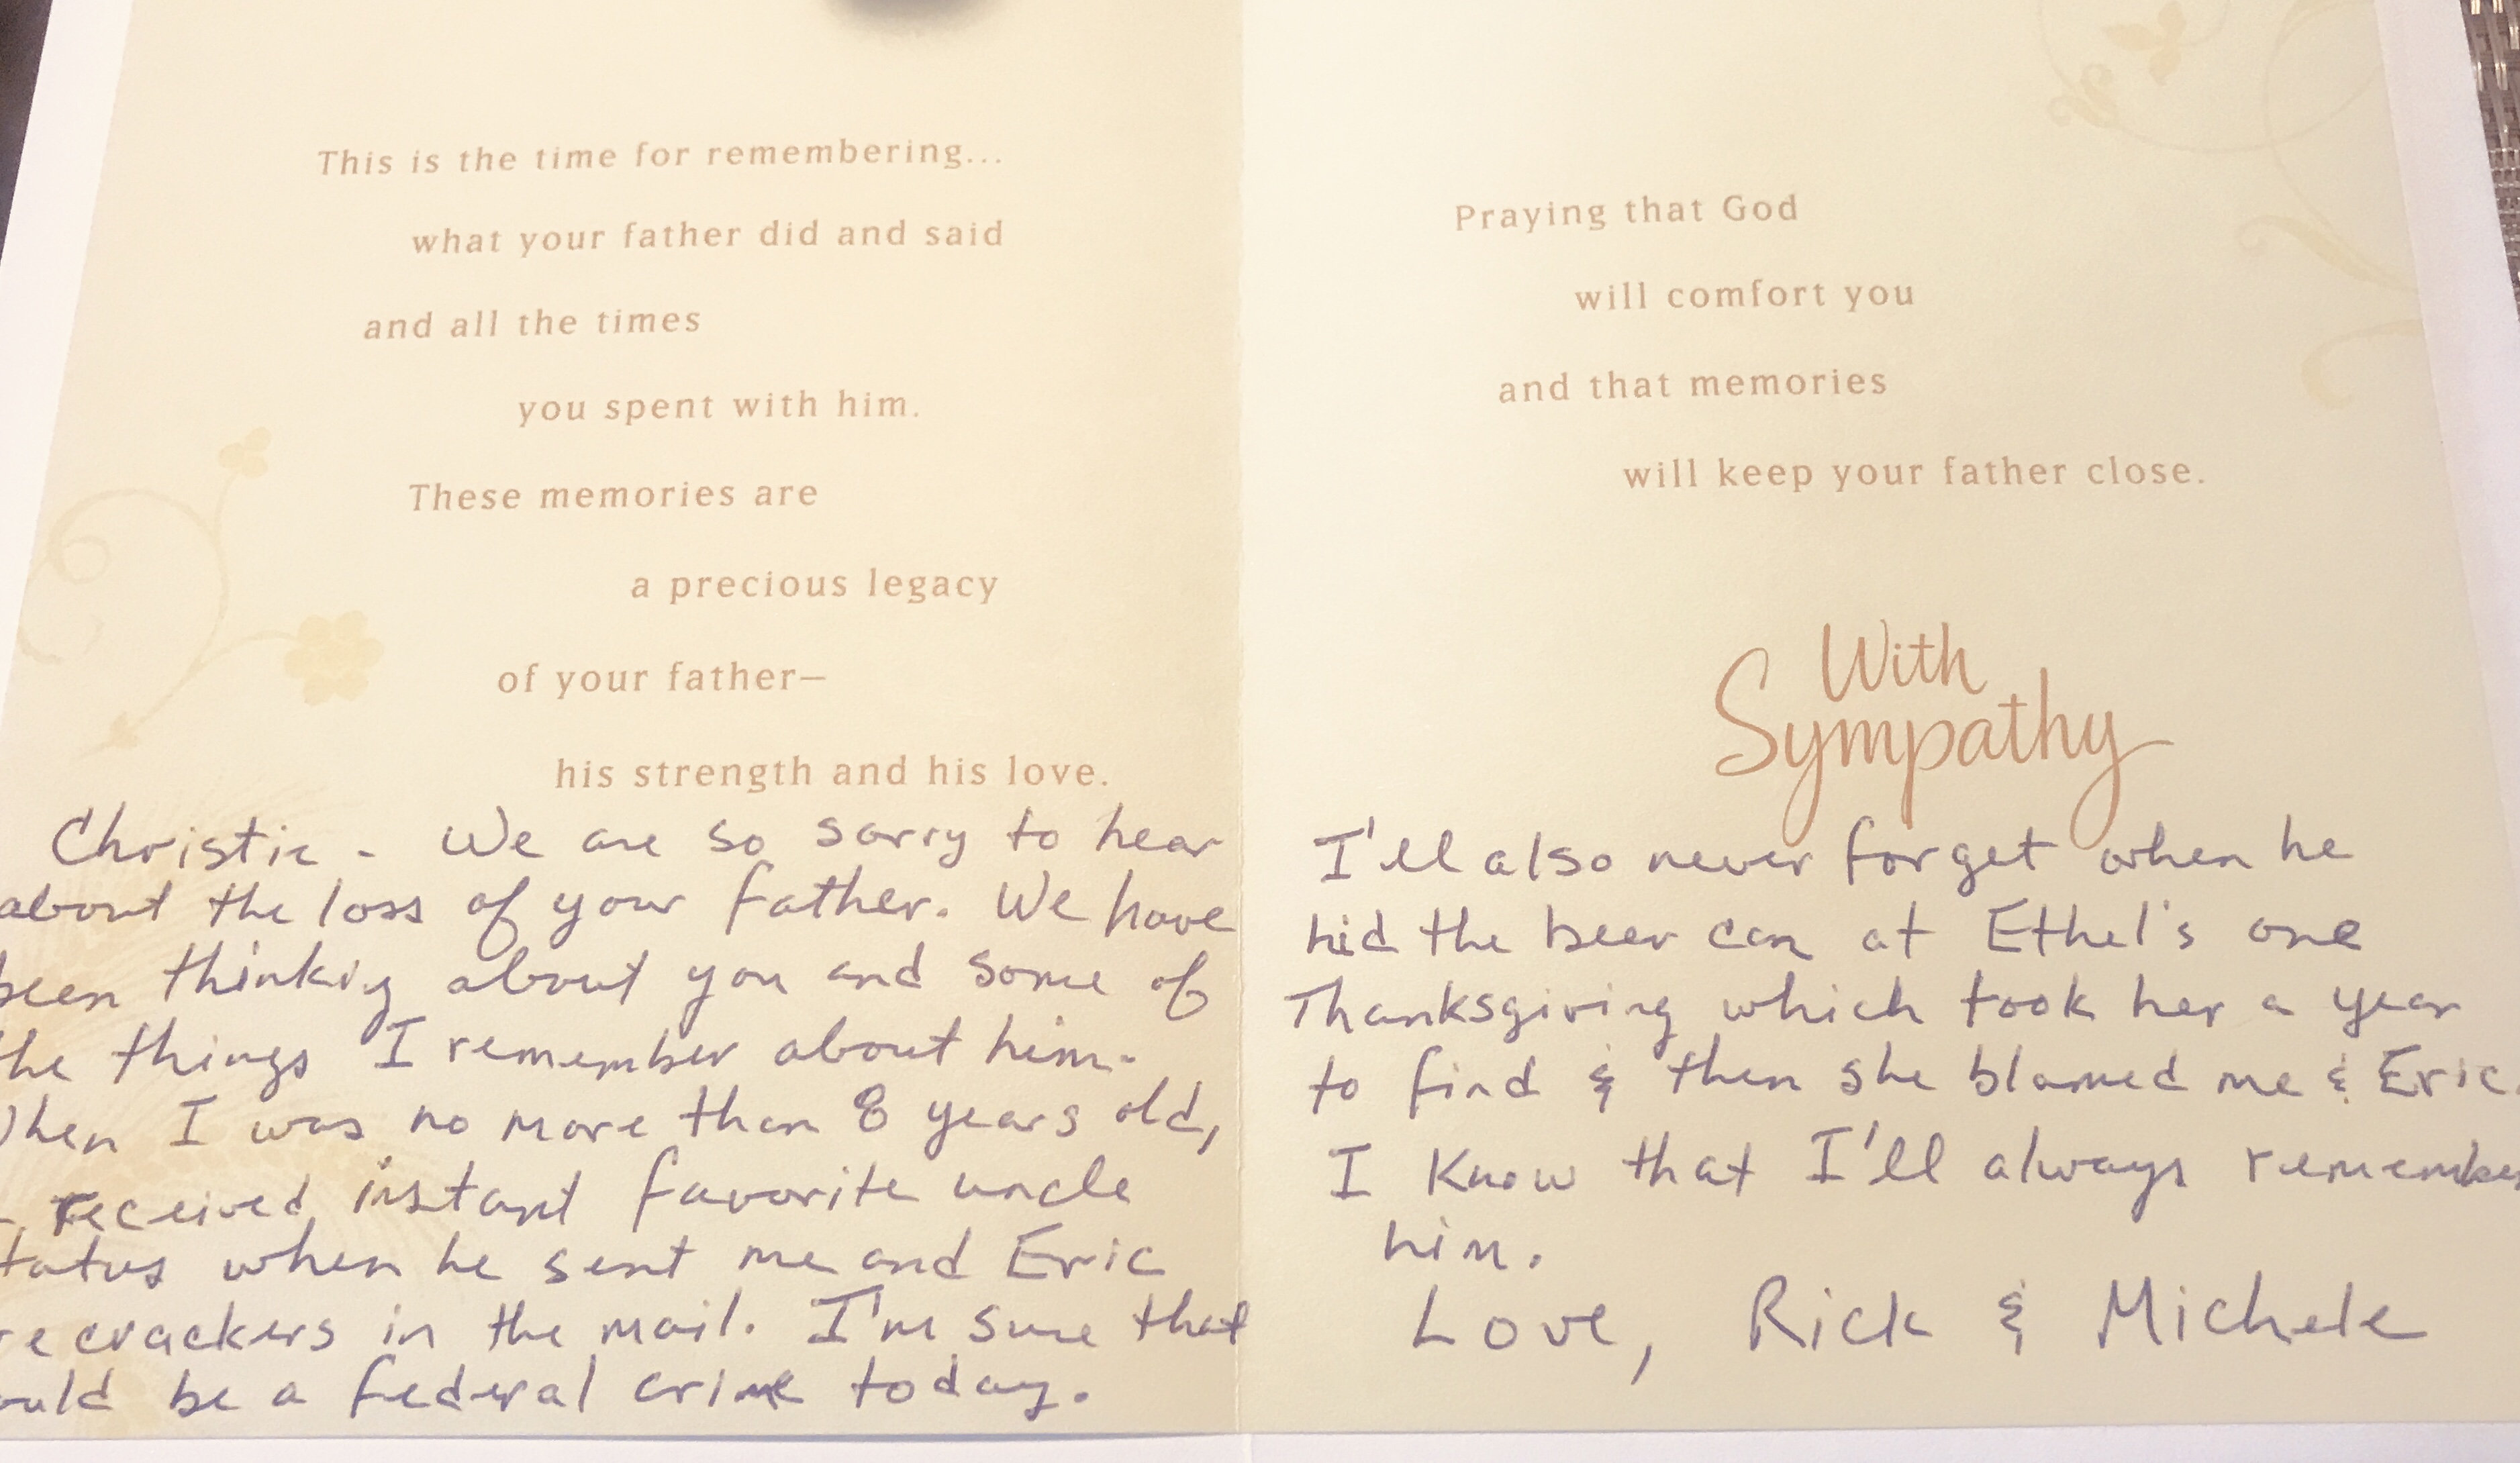 This is the time for remembering...
what your father did and said
and all the times
you spent with him.
These memories are
a precious legacy
of your father—
his strength and his love.
Christie - We are so sorry to hear
about the loss of your father. We have
been thinking about you and some of
the things I remember about him.
When I was no more than 8 years old,
received instant favorite uncle
tatus when he sent me and Eric
re crackers in the mail. I'm sure that
ould be a federal crime today.
Praying that God
will comfort you
and that memories
will keep your father close.
With
Sympathy
I'll also never forget when he
hid the beer can at Ethel's one
Thanksgiving which took her a year
to find & then she blamed me & Eric
I know that I'll always remember
him.
Love, Rick & Michele